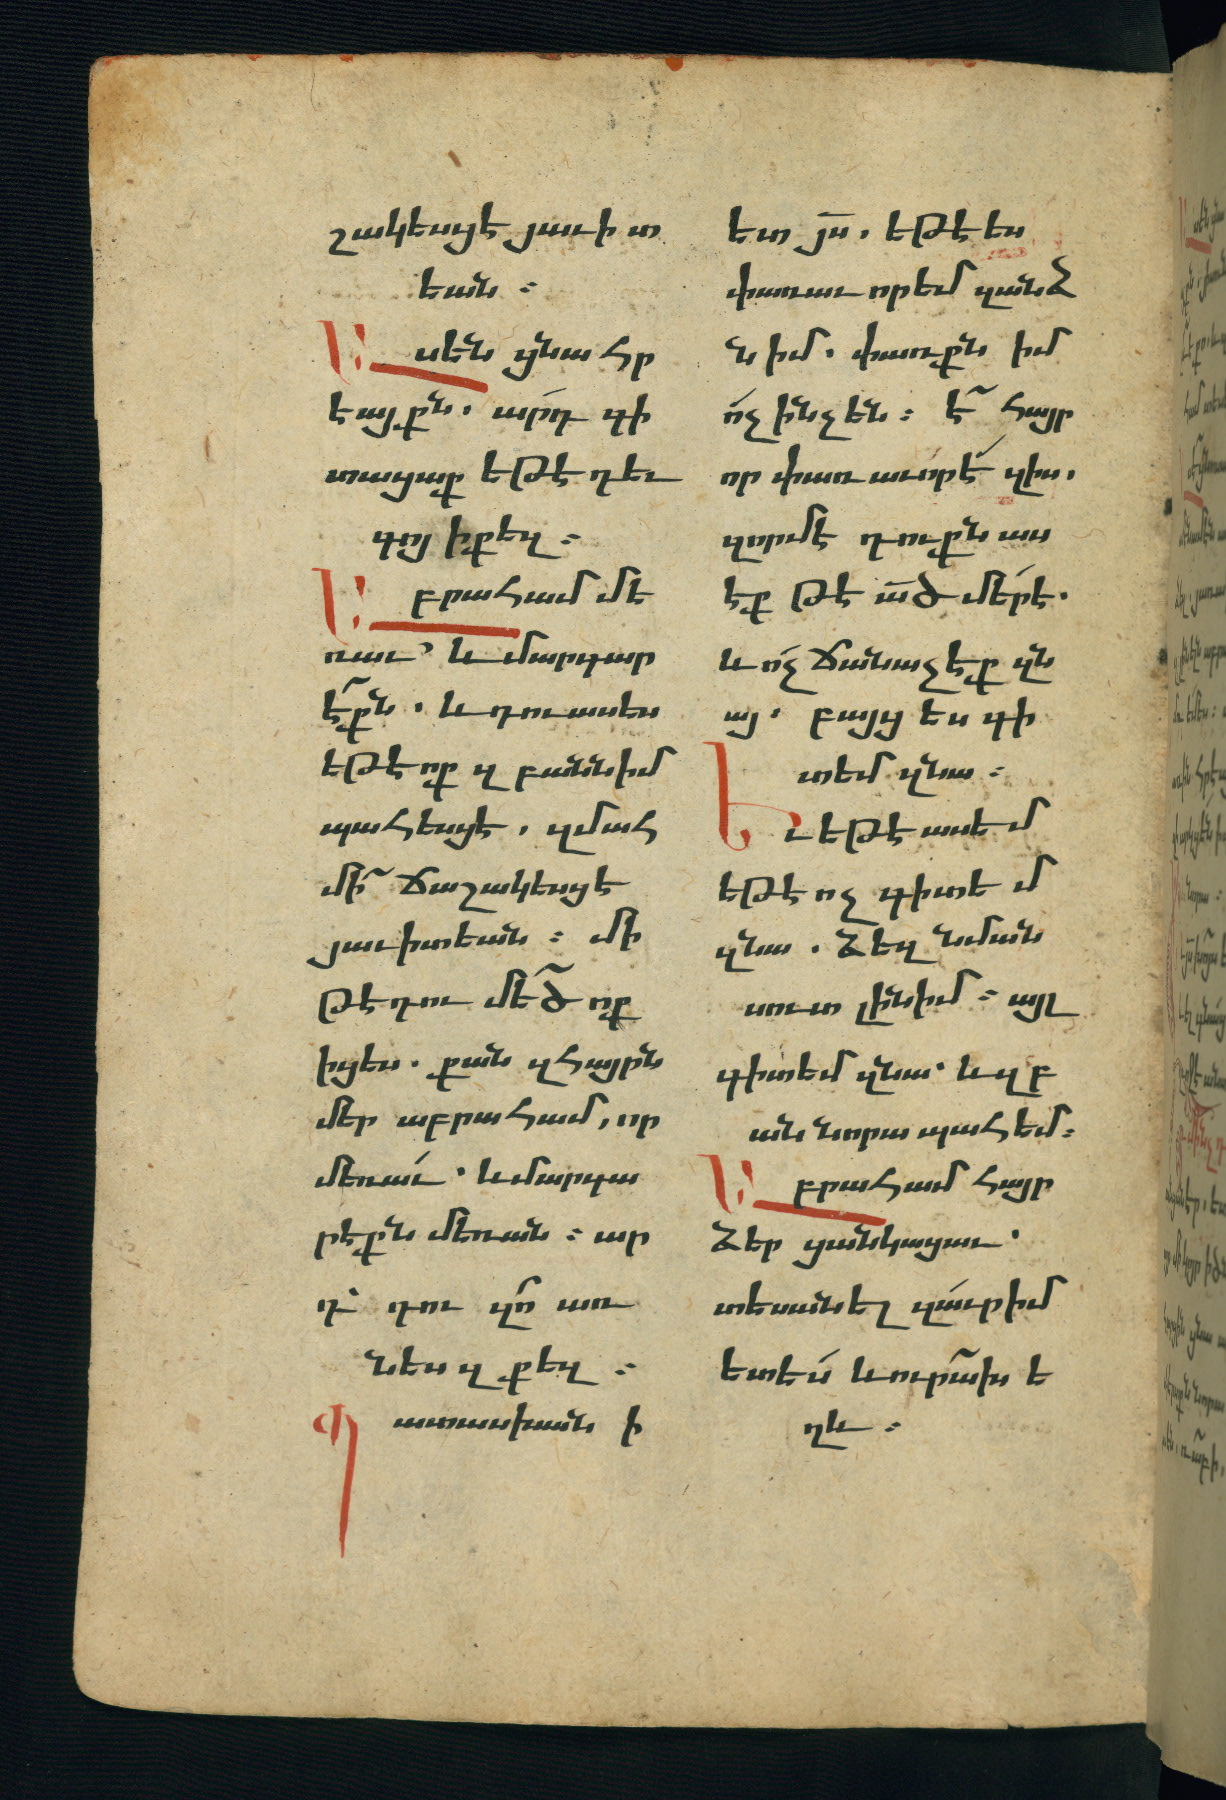 շակեսցէ յաւիտ
եան ։
Ասեն ցնա հր
եայքն. արդ գի
տացաք եթէ դեւ
գոյ ի քեզ ։
Աբրահամ մե
ռաւ՝ և մարգար
է՜քն . և դու ասես
եթէ ոք զ բանն իմ
պահեսցէ . զմահ
մի՜ ճաշակեսցէ
յաւիտեան ։ մի
թէ դու մե՜ծ ոք
իցես . քան զհայրն
մեր աբրահամ, որ
մեռաւ՛ . և մարգա
րէքն մեռան ։ ար
դ՝ դու զո՞ առ
նես զ քեզ ։
Պատասխանի
ետ յս̅ . եթէ ես
փառաւորեմ զանձ
ն իմ . փառքն իմ
ո՛չ ինչ են ։ է՜ հայր
որ փառաւորէ՛ զիս .
զորմէ դուքն աս
էք թէ ա̅ծ մե՛ր է .
և ո՛չ ճանաչէք զն
ա . բայց ես գի
տեմ զնա ։
Եւ եթէ ասեմ
եթէ ոչ գիտեմ
զնա . ձեզ նման
սուտ լինիմ ։ այլ
գիտեմ զնա՝ և զբ
ան նորա պահեմ ։
Աբրահամ հայր
ձեր ցանկացաւ՝
տեսանել զա՛ւր իմ
ետես՛ և ուրա՜խ ե
ղև ։